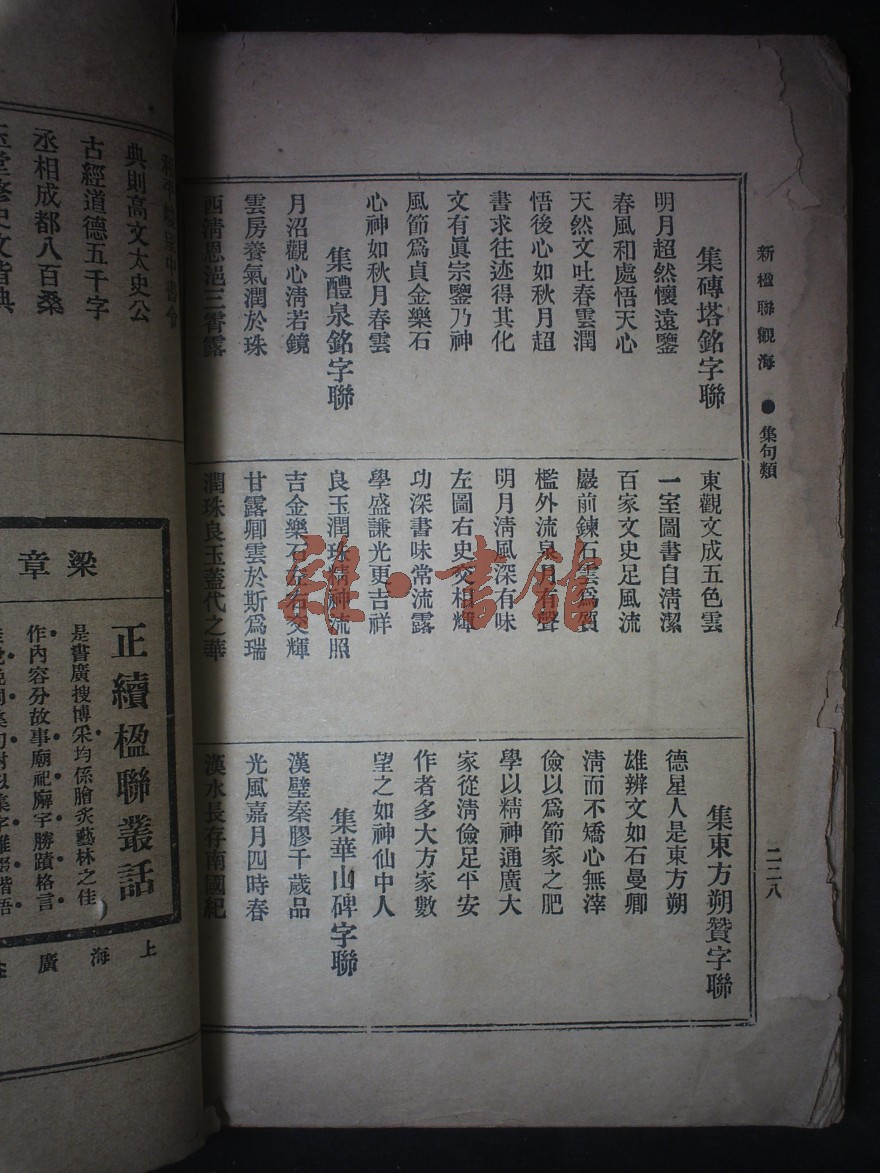 新楹聯觀海 ● 集句類
二二八
集磚塔銘字聯
明月超然懷遠鑒
春風和處悟天心
天然文吐春雲潤
悟後心如秋月超
書求往迹得其化
文有眞宗鑒乃神
風節爲貞金樂石
心神如秋月春雲
集醴泉銘字聯
月沼觀心淸若鏡
雲房養氣潤於珠
西淸恩浥三霄露
東觀文成五色雲
一室圖書自淸潔
百家文史足風流
巖前鍊石雲爲質
檻外流泉月有聲
明月淸風深有味
左圖右史交相輝
功深書味常流露
學盛謙光更吉祥
良玉潤珠精神流照
吉金樂石左右交輝
甘露卿雲於斯爲瑞
潤珠良玉蓋代之華
集東方朔贊字聯
德星人是東方朔
雄辨文如石曼卿
淸而不矯心無滓
儉以爲節家之肥
學以精神通廣大
家從淸儉足平安
作者多大方家數
望之如神仙中人
集華山碑字聯
漢璧秦膠千歲品
光風嘉月四時春
漢水長存南國紀
雜·書館
典則高文太史公
古經道德五千字
丞相成都八百桑
玉堂修史文皆典
梁章
正續楹聯叢話
是書廣搜博采均係膾炙藝林之佳
作內容分故事廟祀廨宇勝蹟格言
上海廣